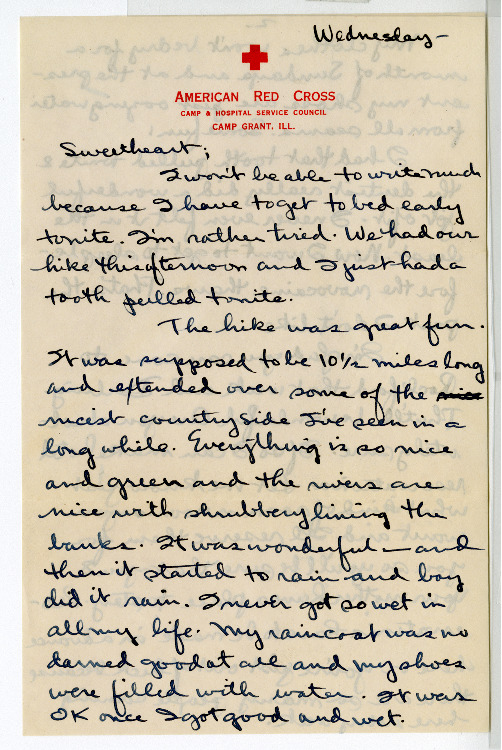 Wednesday—
AMERICAN RED CROSS
CAMP & HOSPITAL SERVICE COUNCIL
CAMP GRANT, ILL.
Sweetheart;
I won't be able to write much
because I have to get to bed early
tonite. I'm rather tired. We had our
hike this afternoon and I just had a
tooth pulled tonite.
The hike was great fun.
It was supposed to be 10½ miles long
and extended over some of the nice
nicest countryside I've seen in a
long while. Everything is so nice
and green and the rivers are
nice with shrubbery lining the
banks. It was wonderful — and
then it started to rain and boy
did it rain. I never got so wet in
all my life. My raincoat was no
darned good at all and my shoes
were filled with water. It was
OK once I got good and wet.